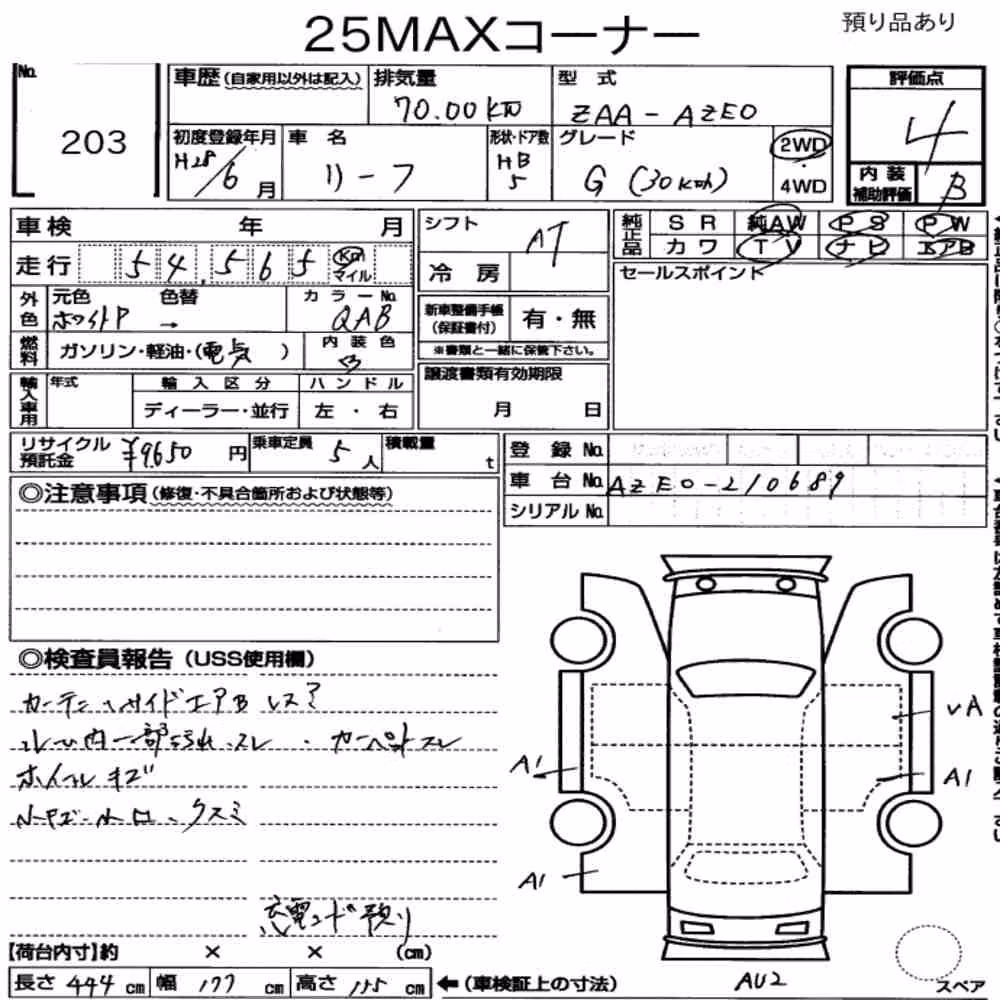 25MAXコーナー
預り品あり
No.
203
車歴(自家用以外は記入)
排気量
70.00KW
型 式
ZAA-AZEO
評価点
4
初度登録年月
H28/6月
車 名
リーフ
形状・ドア数
HB
5
グレード
G (30kwh)
2WD
4WD
内 装
補助評価
B
車検 年 月
走行 54,565 Km
マイル
シフト
AT
冷 房
純正品
SR 純AW PS PW
カワ TV ナビ エアB
セールスポイント
外色
元色
ホワイトP
色替
→
カラーNo.
QAB
新車整備手帳
(保証書付)
有・無
※書類と一緒に保管下さい。
燃料
ガソリン・軽油・(電気 )
内装色
輸入車用
年式
輸入区分
ディーラー・並行
ハンドル
左・右
譲渡書類有効期限
月 日
リサイクル
預託金
¥9,650円
乗車定員
5人
積載量
t
登 録 No.
車 台 No. AZEO-210689
シリアル No.
◎注意事項(修復・不具合箇所および状態等)
◎検査員報告(USS使用欄)
カーテン、サイドエアB レス?
ルーム内一部よごれ、スレ・カーペットスレ
ホイールキズ
クスミ
充電コード預り
A1
A1
A1
AU2
スペア
【荷台内寸】約 × × (cm)
長さ 444 cm 幅 177 cm 高さ 155 cm
←(車検証上の寸法)